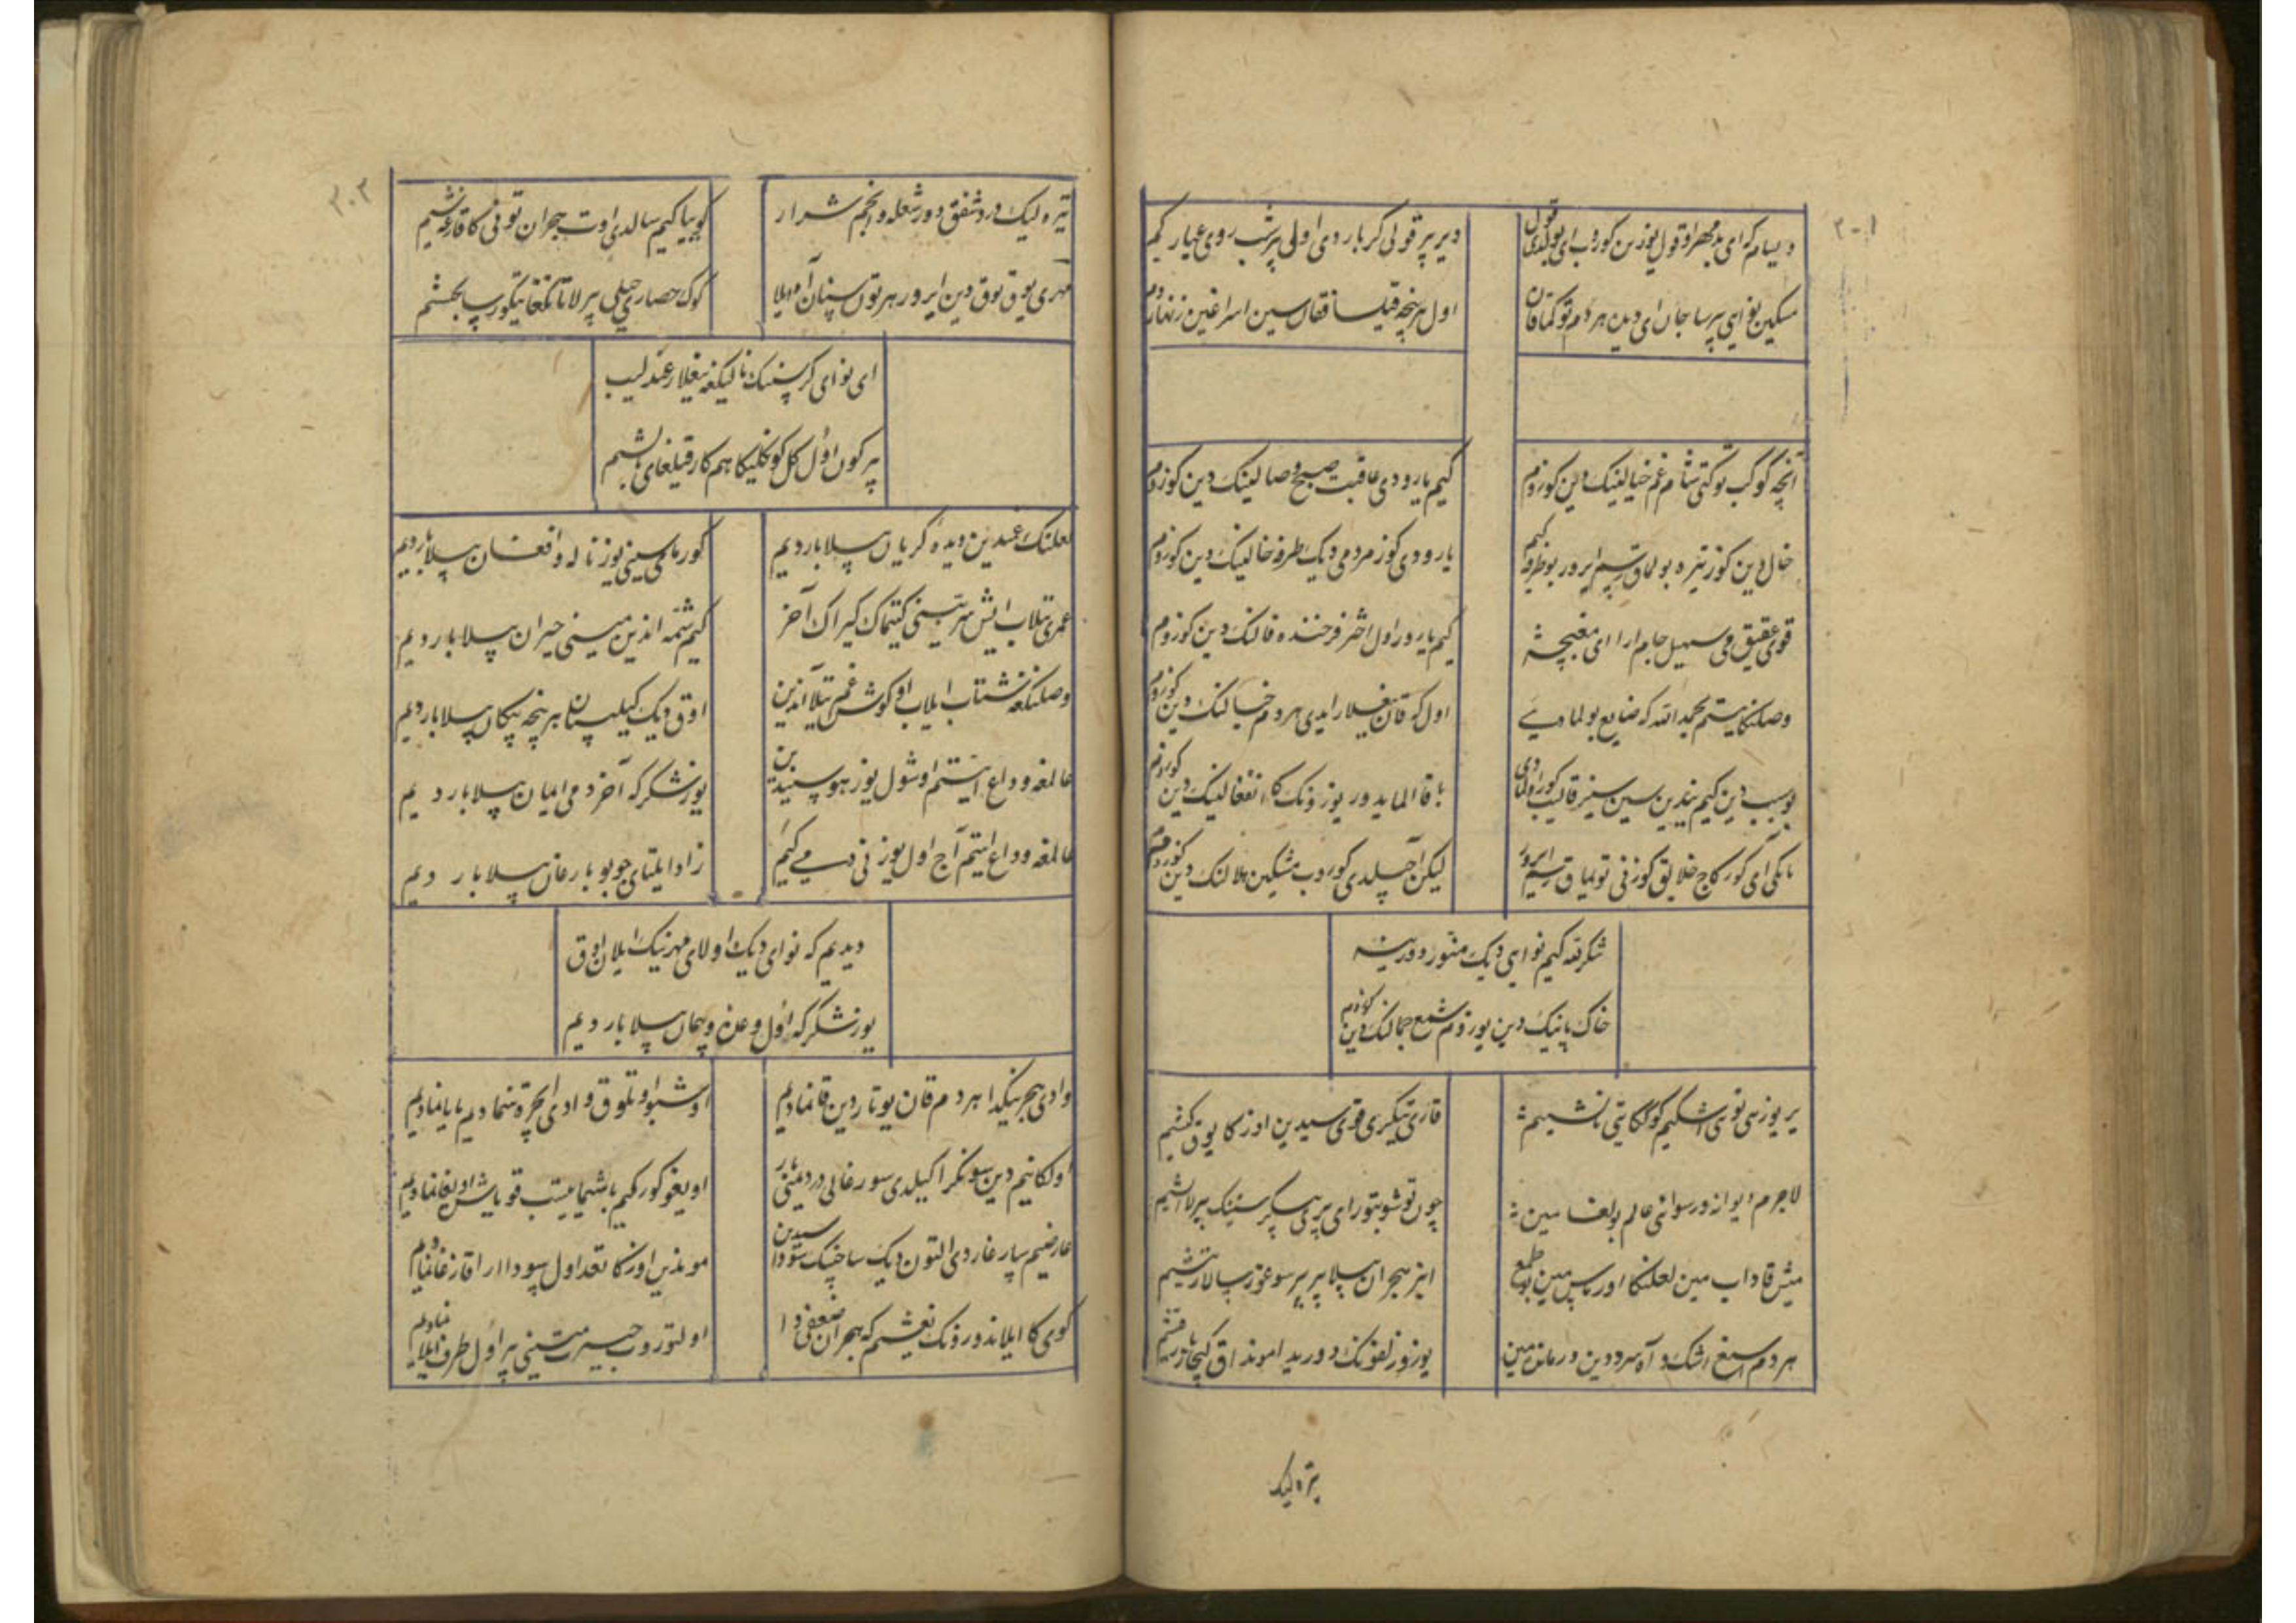 دیسام که ای بدمهر اوقول یوزین کوروب ای بولدی قول
دیر بیر قولی کر بار دی اولی بر شب روی عیار کم
مسکین نوایی بیر سا جان ای دین هر دم توکماقان
اول هر نیچه قیلسا فغان سین اسراغین زنهار دم
آنچه کوکب توکتی شام غم خیالینک دین کوزوم
کیم یارودی عاقبت صبح وصالینک دین کوزوم
خال دین کوز تیره بولماق رسم ایرور بو طرفه کیم
یارودی کوز مردمی دیک طرفه خالینک دین کوزوم
قوی عقیق می سهیل جام ارا ای مغبچه
کیم یارور اول اختر فرخنده فالنک دین کوزوم
وصلنکا یتیم بحمد الله که ضایع بولمادی
اول که قان یغلار ایدی هر دم خیالنک دین کوزوم
بو سبب دین کیم سین سیز قالیب کورادی
باقا الماید ور یوزونک کا انفعالینک دین کوزوم
یانکی ای کورکاج خلایق کوزنی توتماق رسم ایرور
لیکن آچیلدی کوروب مشکین هلالنک دین کوزوم
شکر لله کیم نوایی دیک منور دور ینه
خاک پاینک دین یوزوم شمع جمالنک دین کوزوم
بیر یوزی نی توشی اشکیم کوککا یتی ناشیم
قازی تیکری قوی سیدین اوزکا یوق کیشیم
لاجرم دیوانه و رسوای عالم بولغا مین
چون توشوبتور ای پری پیکر سنینک بیرلا ایشیم
میش قاداب مین لعلنکا اورماس مین بو طمع
ایز هجران بیلا بیر بیر سوغورسالار تیشیم
هر دم اسیغ اشک و آه سرد دین درمانده مین
یوز و زلفونک دور بد اموند اق کیچار یاز و قیشیم
تیره لیک
تیره لیک دود شفق دور شعله و انجم شرار
کوییا کیم سالدی اوت هجران تونی کا قارغیشیم
مهری یوق توق دین ایرور هر تون سپنان آه ایلا
کوک حصاری خیلی بیرلا تانکغا تیکور پیکشم
ای نوای کر سنینک نالینکغه یغلار عندلیب
بیر کون اول کل کونکلیکا هم کار قیلغای نالشیم
لعلنک غمیدین دیده کریان بیلا باردیم
کورمای سینی یوز ناله و افغان بیلا باردیم
عمری تیلاب ایش مرتبه سینی کیتماک کیراک آخر
کیم شمه اندین مینی حیران بیلا باردیم
وصلنکغه شتاب ایلاب اوکوش غم تیلا اندین
اوق دیک کیلیبان هر نیچه پیکان بیلا باردیم
عالمغه وداع ایتیم اوشول یوز هوسیدین
یوز شکر که آخر دمی ایمان بیلا باردیم
عالمغه وداع ایتیم آج اول یوز نی دمی کیم
زاد ایلتای چو بو بارغان بیلا باردیم
دیدیم که نوای دیک اولای مهرنیک ایلان اوق
یوز شکر که اول وعده و پیمان بیلا باردیم
وادی هجرینکدا هر دم قان یوتاردین قانمادیم
اوشبو اوتلوق وادی ایچره تنمادیم یا یانمادیم
اولکانیم دین سونکرا کیلدی سورغالی دردیمنی یار
اویغو کور کیم باشیما ییتیب قویاش اویغانمادیم
عارضیم سارغاردی التون دیک ساچینک سوداسیدین
موندین اوزکا نقد اول سودا ارا قازغانمادیم
کوی کا ایلاندوردونک نعشیم که هجران ضعفی دا
اولتوروب حسرت مینی بیر اول طرف ایلانمادیم